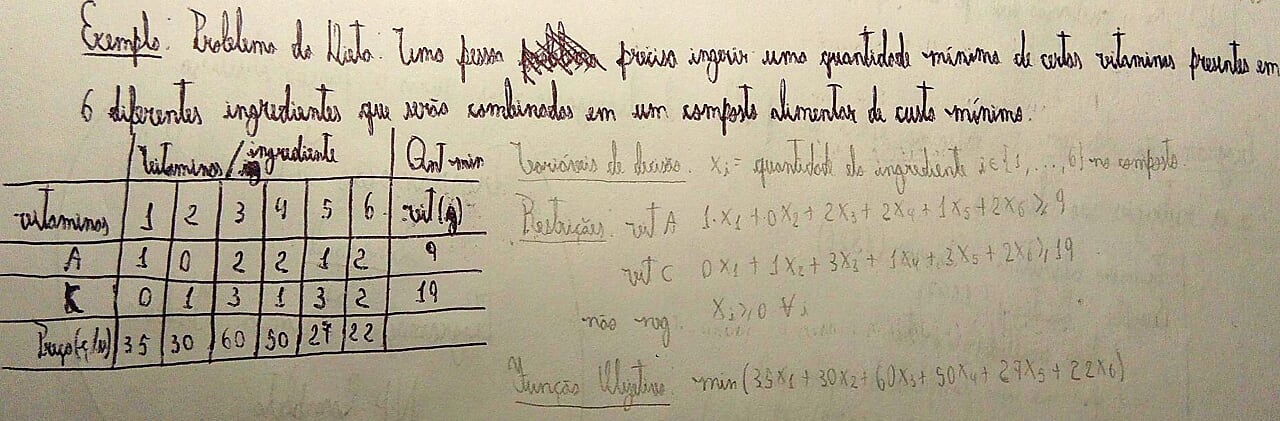 Exemplo: Problema da Dieta: Uma pessoa precisa ingerir uma quantidade mínima de certas vitaminas presentes em
6 diferentes ingredientes que serão combinados em um composto alimentar de custo mínimo.
Vitaminas/ingrediente Qnt min
vitaminas 1 2 3 4 5 6 vit(g)
A 1 0 2 2 1 2 9
0 1 3 1 3 2 19
35 30 60 50 27 22
Variáveis de decisão. xi = quantidade do ingrediente i∈{1, ..., 6} no composto.
Restrições: vit A 1·x1 + 0x2 + 2x3 + 2x4 + 1x5 + 2x6 ≥ 9
vit C 0x1 + 1x2 + 3x3 + 1x4 + 3x5 + 2x6 ≥ 19
não neg. xi ≥ 0 ∀i
Função Objetivo: min(35x1 + 30x2 + 60x3 + 50x4 + 27x5 + 22x6)